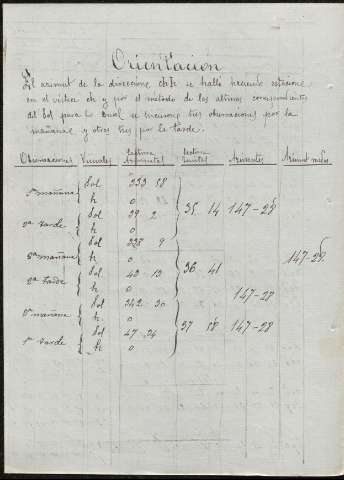 Orientación
El azimut de la dirección se halló haciendo estación
en el vértice ch y por el método de las alturas correspondientes
del Sol para lo cual se hicieron tres observaciones por la
mañana y otras tres por la tarde.
Observaciones Visuales Lectura horizontal Lectura Azimutes Azimut medio
1ª mañana Sol 233 58
h 0
35 14 147-28
3ª tarde Sol 39 2
h 0
2ª mañana Sol 238 9
h 0
36 41 147-28
2ª tarde Sol 43 13
h 0
147-28
3ª mañana Sol 242 30
h 0
37 58 147-28
1ª tarde Sol 47 24
h 0